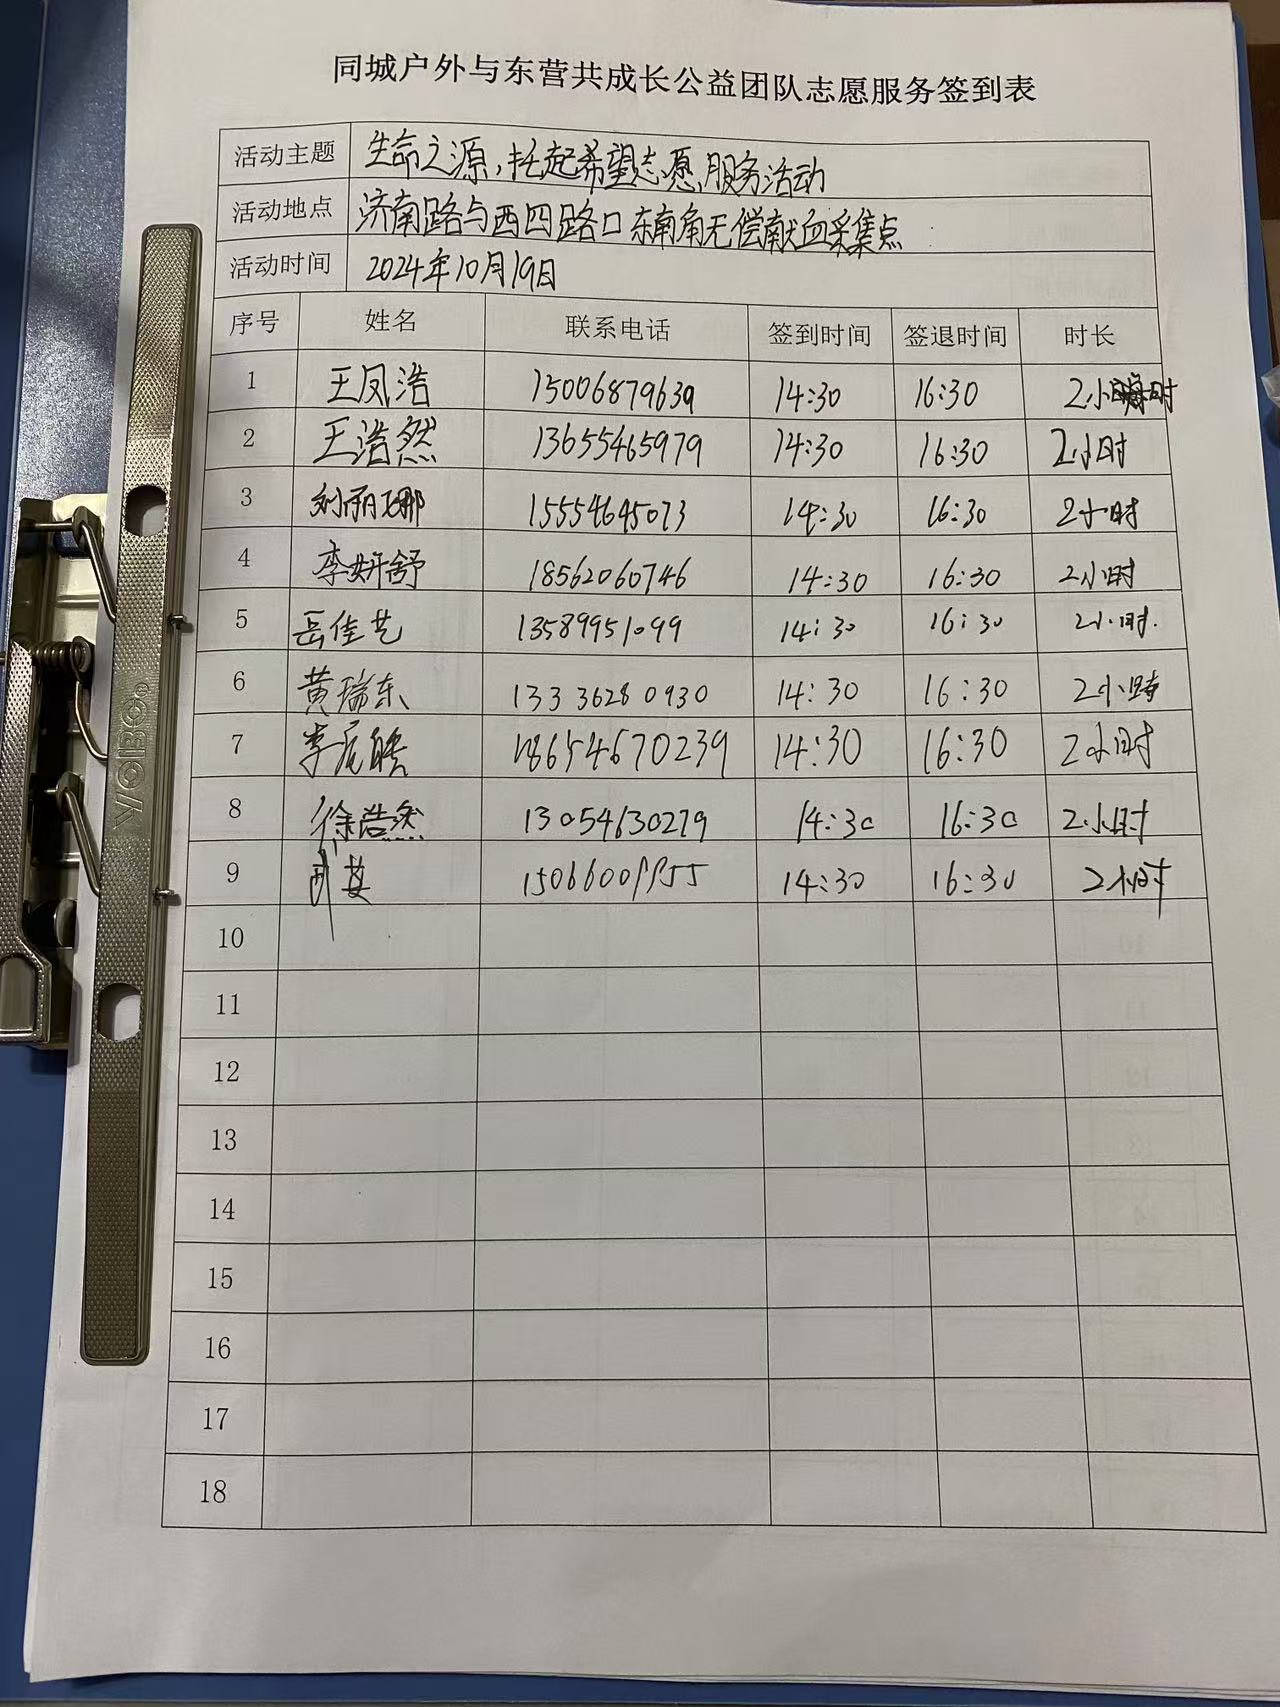 同城户外与东营共成长公益团队志愿服务签到表
活动主题 生命之源,托起希望志愿服务活动
活动地点 济南路与西四路口东南角无偿献血采集点
活动时间 2024年10月19日
序号 姓名 联系电话 签到时间 签退时间 时长
1 王凤浩 15006879639 14:30 16:30 2小时
2 王浩然 13655465979 14:30 16:30 2小时
3 刘丽娜 15554645073 14:30 16:30 2小时
4 李妍舒 18562060746 14:30 16:30 2小时
5 岳佳艺 13589951099 14:30 16:30 2小时.
6 黄瑞东 13336280930 14:30 16:30 2小时
7 18654670239 14:30 16:30 2小时
8 徐浩然 13054630279 14:30 16:30 2小时
9 14:30 16:30 2小时
10
11
12
13
14
15
16
17
18
WOBO